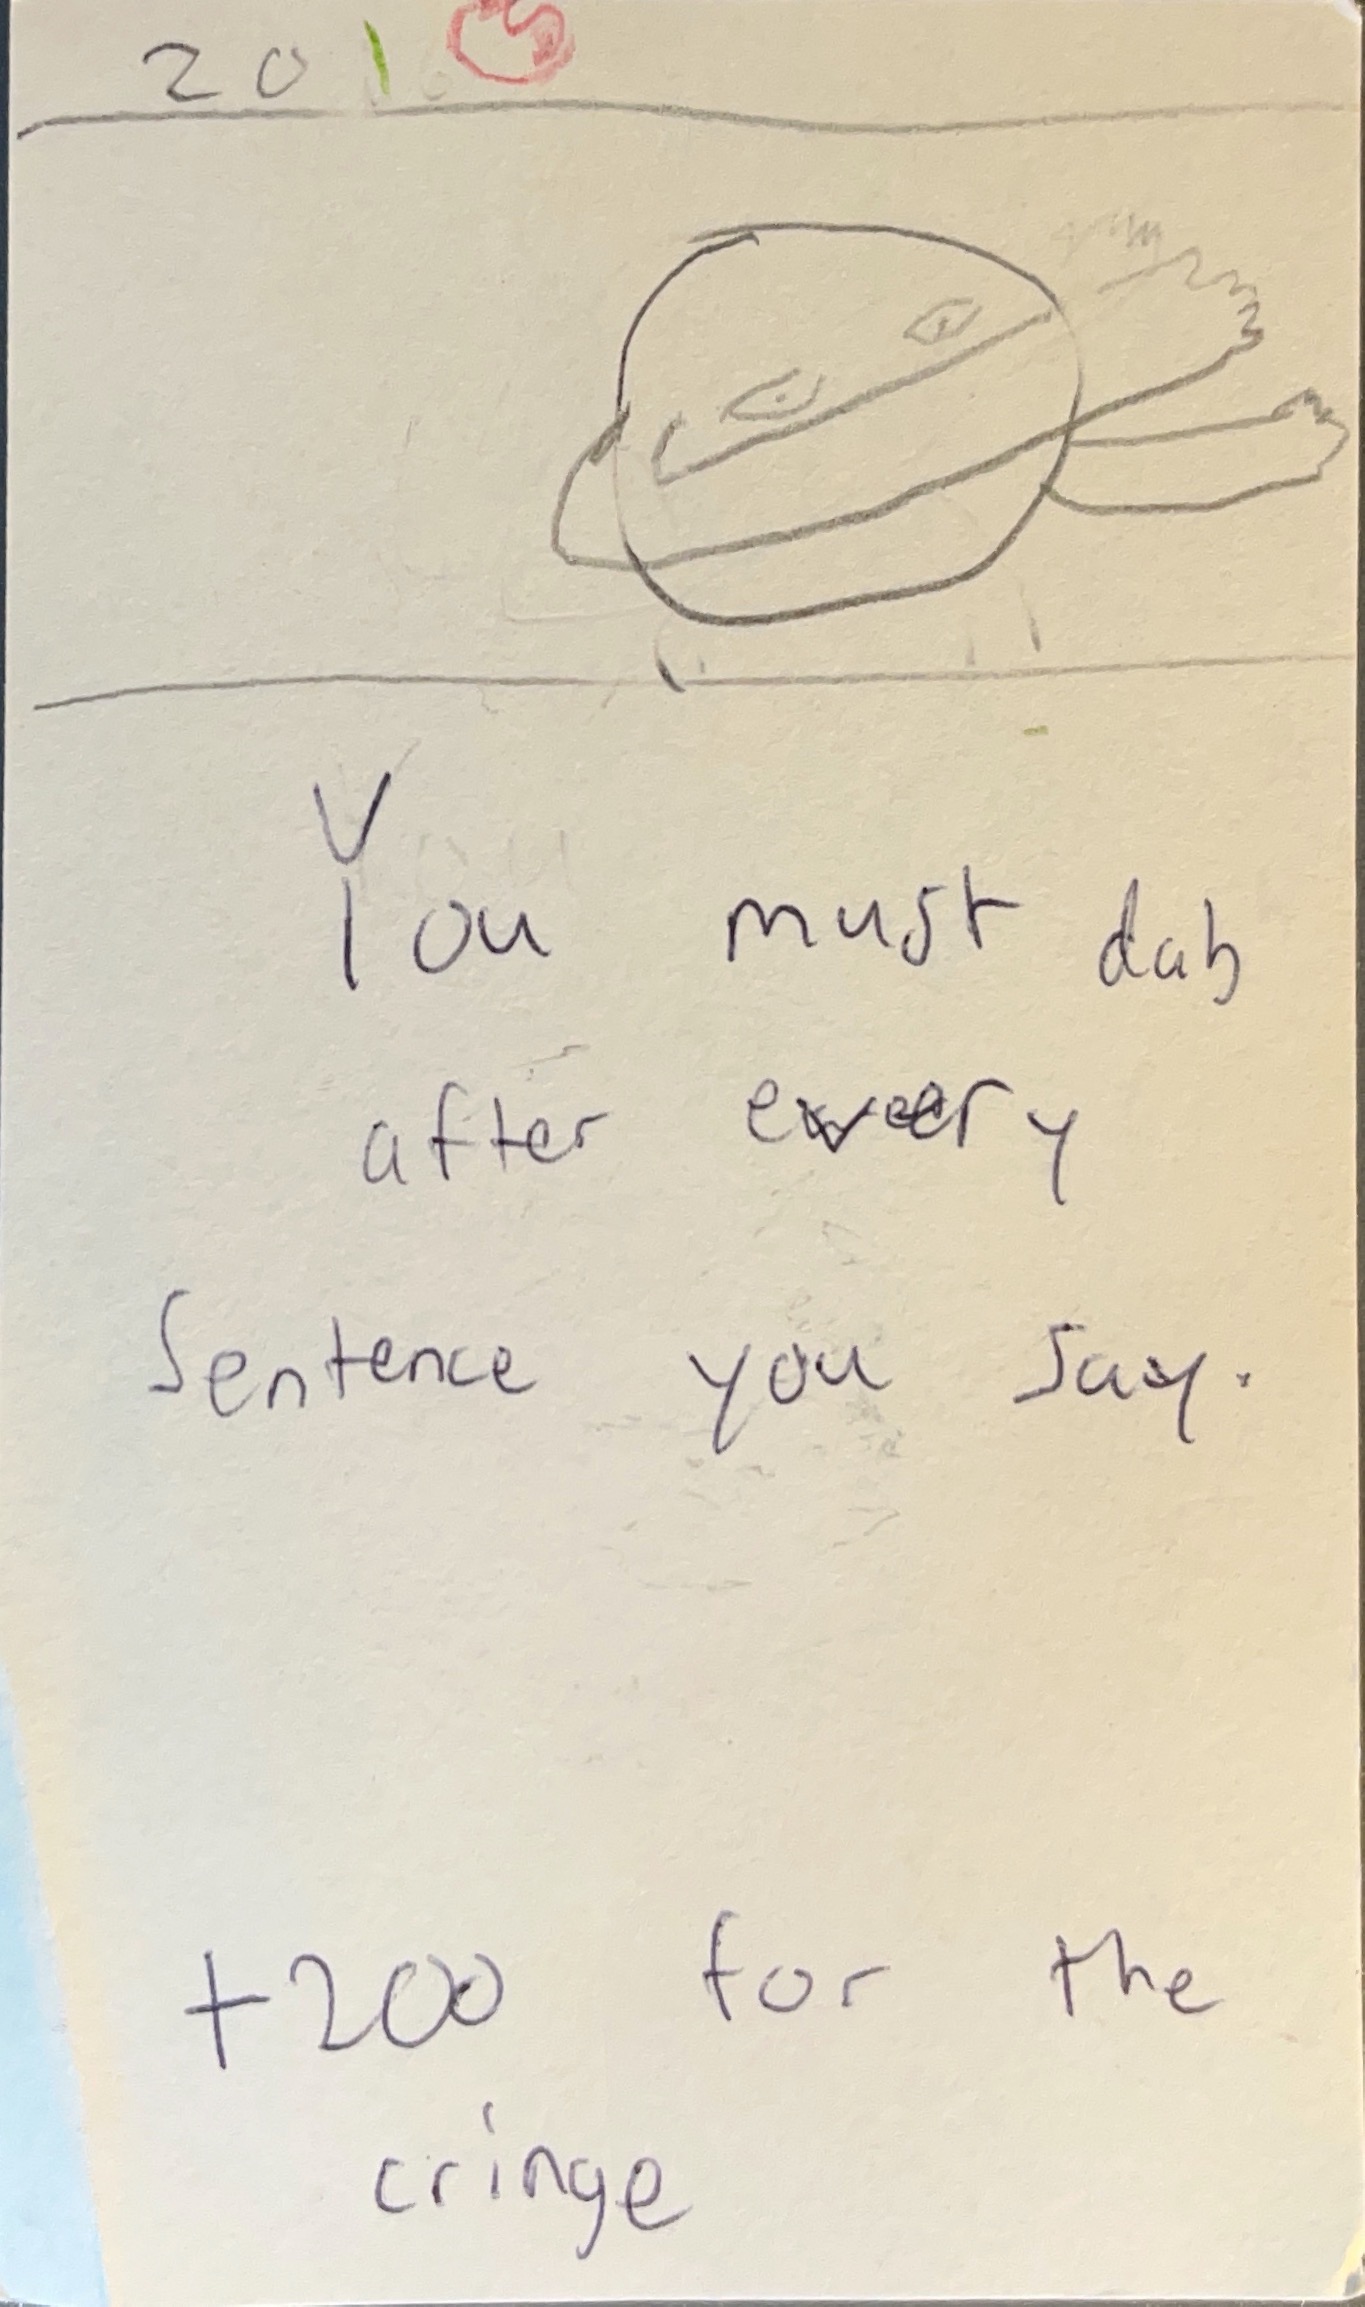 201
You must dab
after every
Sentence you say.
+200 for the
cringe